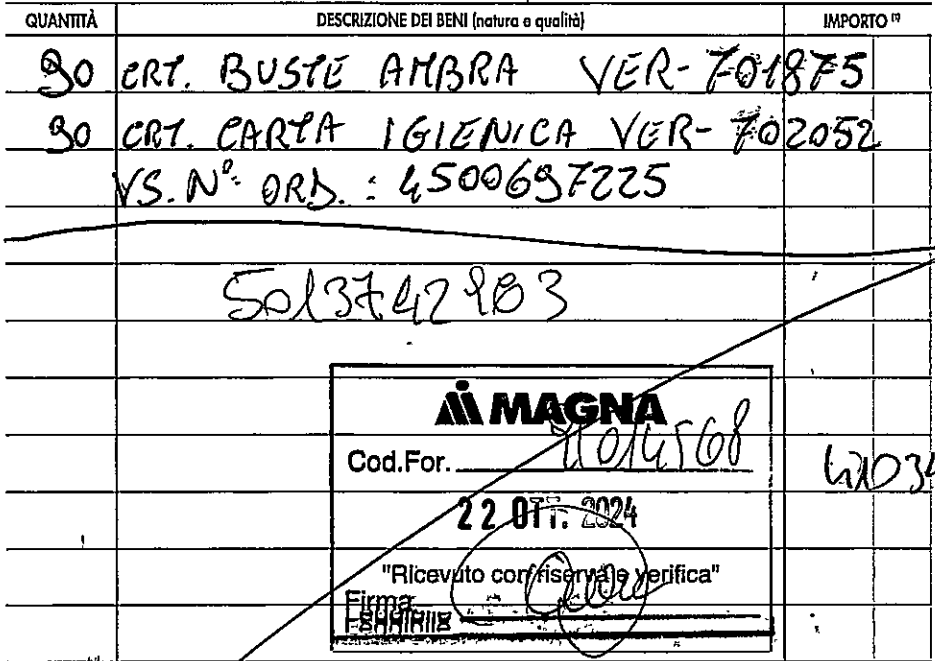 QUANTITÀ DESCRIZIONE DEI BENI (natura e qualità) IMPORTO (1)
90 CRT. BUSTE AMBRA VER-701875
90 CRT. CARTA IGIENICA VER-702052
VS. N°. ORD.: 4500697225
5013742983
MAGNA
Cod.For.
22 OTT. 2024
"Ricevuto con riserva e verifica"
Firma